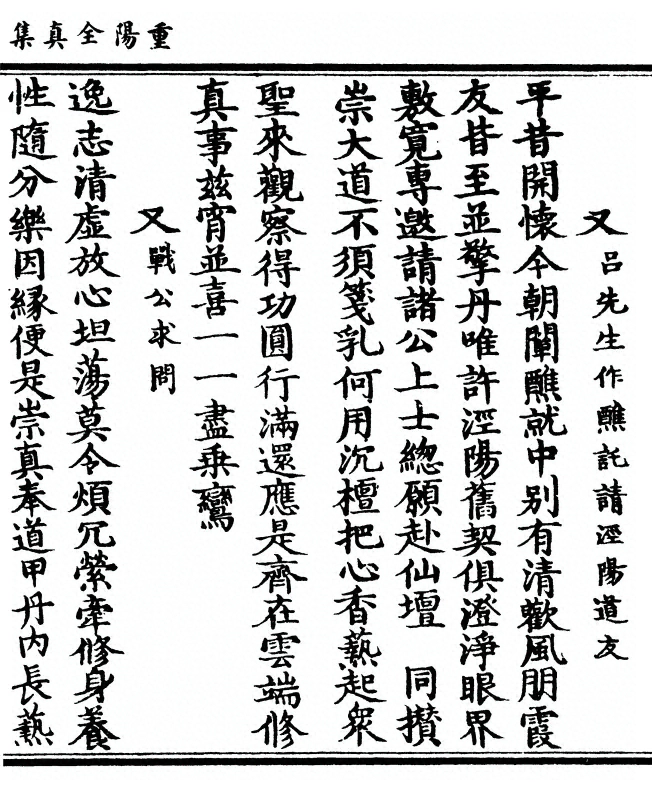 重陽全真集
又 吕先生作醮託請涇陽道友
平昔開懷今朝闡醮就中别有清歡風朋霞
友皆至並擎丹唯許涇陽舊契俱澄淨眼界
敷寛專邀請諸公上士緫願赴仙壇 同攢
崇大道不須箋乳何用沉檀把心香爇起衆
聖來觀察得功圓行滿還應是齊在雲端修
真事兹宵並喜一一盡乗鸞
又 戰公求問
逸志清虛放心坦蕩莫令煩冗縈牽修身養
性隨分樂因縁便是崇真奉道甲丹内長爇